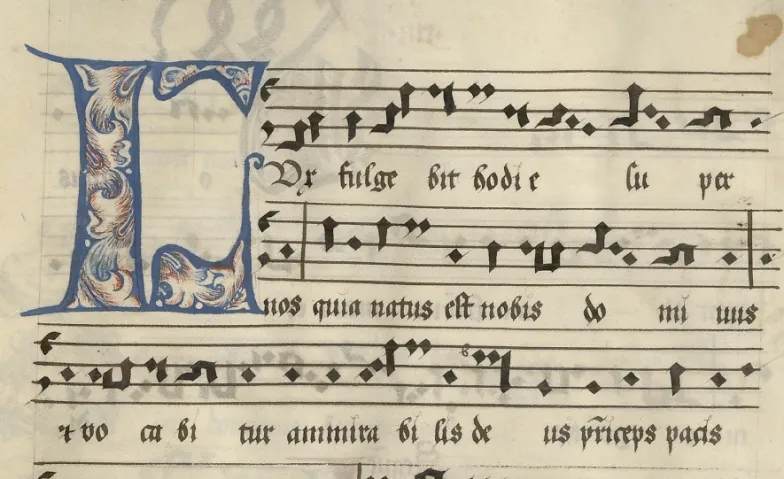 LUx fulge bit hodi e su per
nos quia natus est nobis do mi nus
⁊ vo ca bi tur ammira bi lis de us pr̃iceps pacis